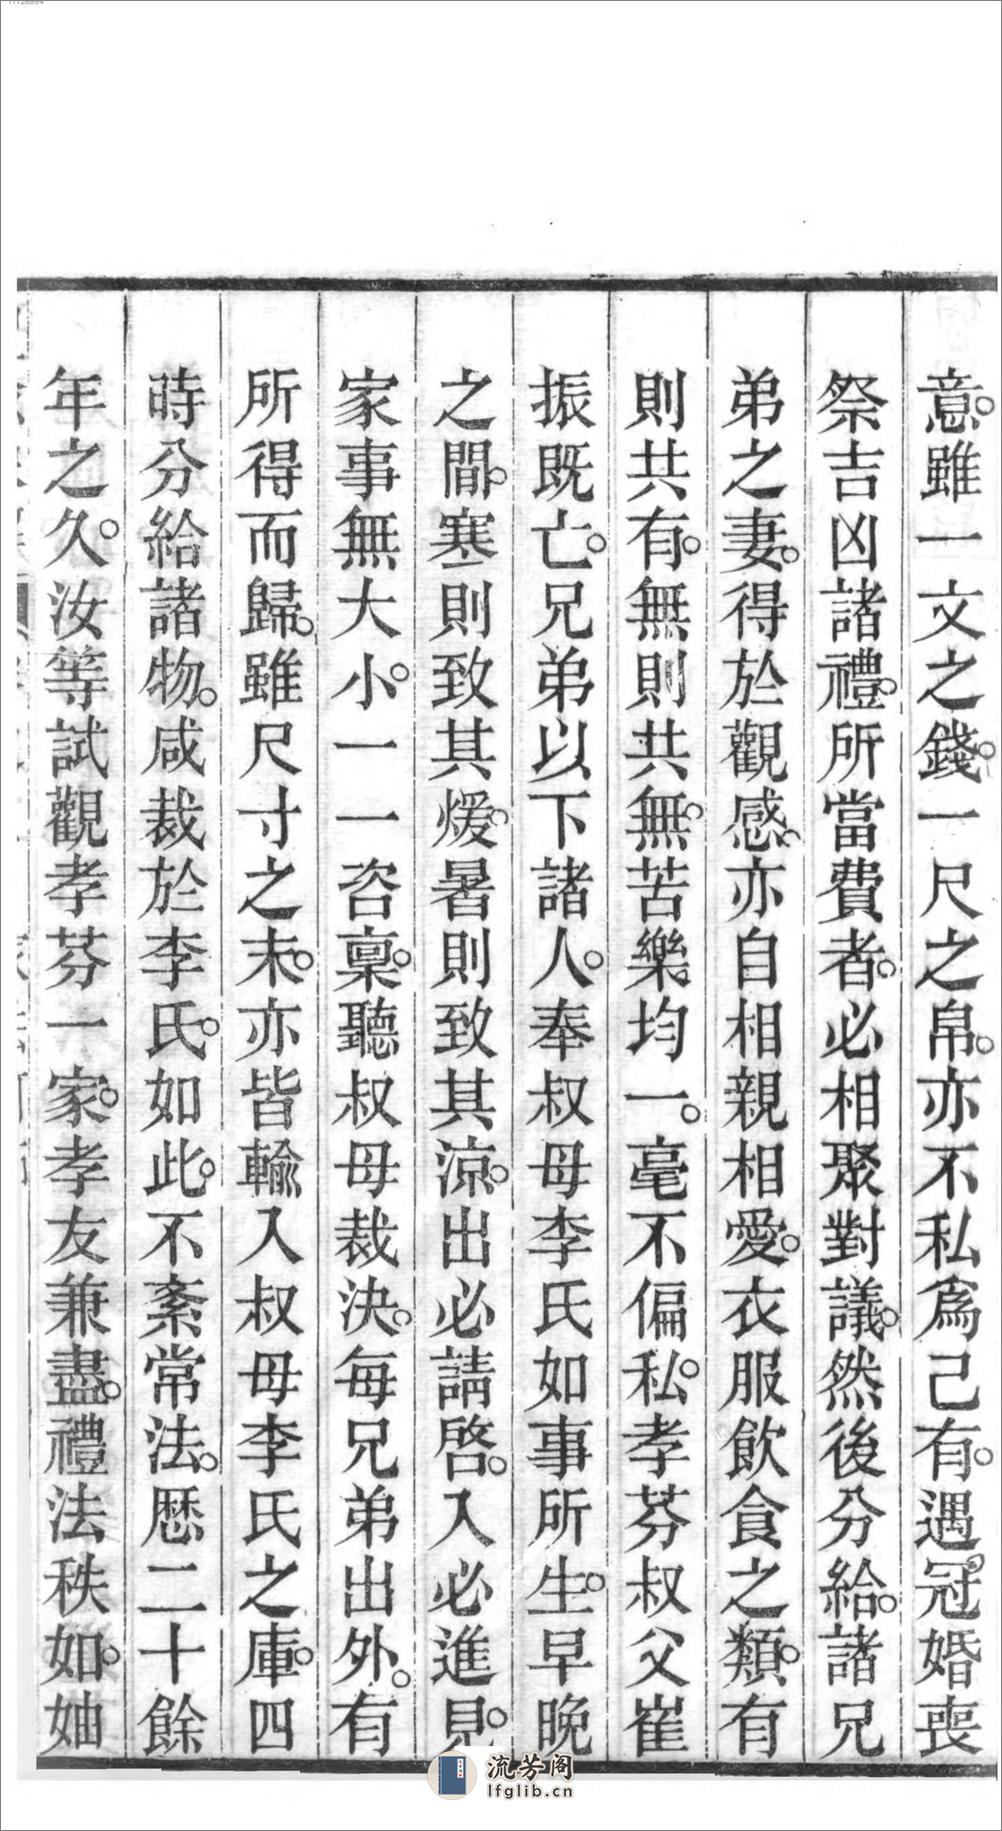 意。雖一文之錢。一尺之帛。亦不私爲己有。遇冠婚喪
祭吉凶諸禮。所當費者。必相聚對議。然後分給。諸兄
弟之妻。得於觀感。亦自相親相愛。衣服飲食之類。有
則共有。無則共無。苦樂均一。毫不偏私。孝芬叔父崔
振既亡。兄弟以下諸人。奉叔母李氏如事所生。早晚
之間。寒則致其煖。暑則致其涼。出必請啓。入必進見。
家事無大小。一一咨稟。聽叔母裁決。每兄弟出外。有
所得而歸。雖尺寸之末。亦皆輸入叔母李氏之庫。四
時分給諸物。咸裁於李氏。如此。不紊常法。歷二十餘
年之久。汝等試觀孝芬一家。孝友兼盡。禮法秩如。妯
流芳阁
lfglib.cn